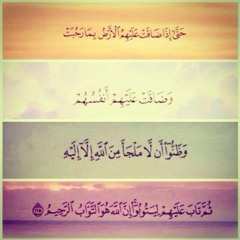 حَتَّىٰ إِذَا ضَاقَتْ عَلَيْهِمُ ٱلْأَرْضُ بِمَا رَحُبَتْ
وَضَاقَتْ عَلَيْهِمْ أَنفُسُهُمْ
وَظَنُّوٓا۟ أَن لَّا مَلْجَأَ مِنَ ٱللَّهِ إِلَّآ إِلَيْهِ
ثُمَّ تَابَ عَلَيْهِمْ لِيَتُوبُوٓا۟ إِنَّ ٱللَّهَ هُوَ ٱلتَّوَّابُ ٱلرَّحِيمُ ١١٨